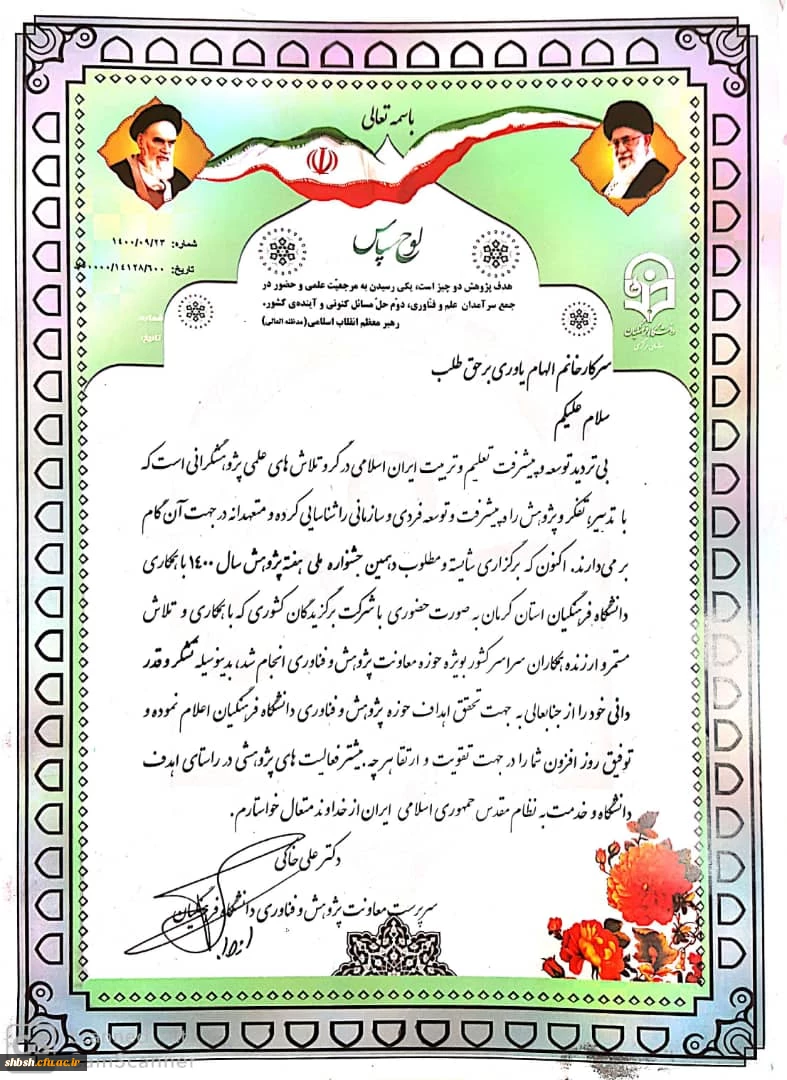 باسمه تعالی
لوح سپاس
شماره: ۱۴۰۰/۰۹/۲۳
تاریخ: ۵۰۰۰۰/۱۴۱۲۸/۶۰۰
هدف پژوهش دو چیز است، یکی رسیدن به مرجعیّت علمی و حضور در
جمع سرآمدان علم و فنّاوری، دوّم حلّ مسائل کنونی و آینده‌ی کشور.
رهبر معظم انقلاب اسلامی(مدظله العالی)
شماره:
تاریخ:
دانشگاه فرهنگیان
سازمان مرکزی
سرکار خانم الهام یاوری بر حق طلب
سلام علیکم
بی تردید توسعه و پیشرفت تعلیم و تربیت ایران اسلامی در گرو تلاش های علمی پژوهشگرانی است که
با تدبیر، تفکر و پژوهش راه پیشرفت و توسعه فردی و سازمانی را شناسایی کرده و متعهدانه در جهت آن گام
بر می‌دارند. اکنون که برگزاری شایسته و مطلوب دهمین جشنواره ملی هفته پژوهش سال ۱۴۰۰ با همکاری
دانشگاه فرهنگیان استان کرمان به صورت حضوری با شرکت برگزیدگان کشوری که با همکاری و تلاش
مستمر و ارزنده همکاران سراسر کشور بویژه حوزه معاونت پژوهش و فناوری انجام شد، بدینوسیله تشکر و قدر
دانی خود را از جنابعالی به جهت تحقق اهداف حوزه پژوهش و فناوری دانشگاه فرهنگیان اعلام نموده و
توفیق روز افزون شما را در جهت تقویت و ارتقا هر چه بیشتر فعالیت های پژوهشی در راستای اهدف
دانشگاه و خدمت به نظام مقدس جمهوری اسلامی ایران از خداوند متعال خواستارم.
دکتر علی خاکی
سرپرست معاونت پژوهش و فناوری دانشگاه فرهنگیان
shbsh.cfu.ac.ir